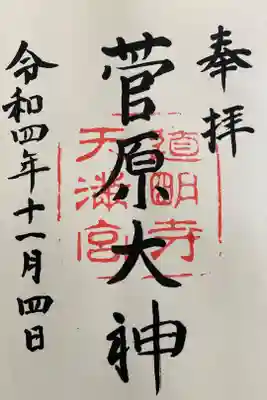 奉拝
道明寺
天満宮
菅原大神
令和四年十一月四日